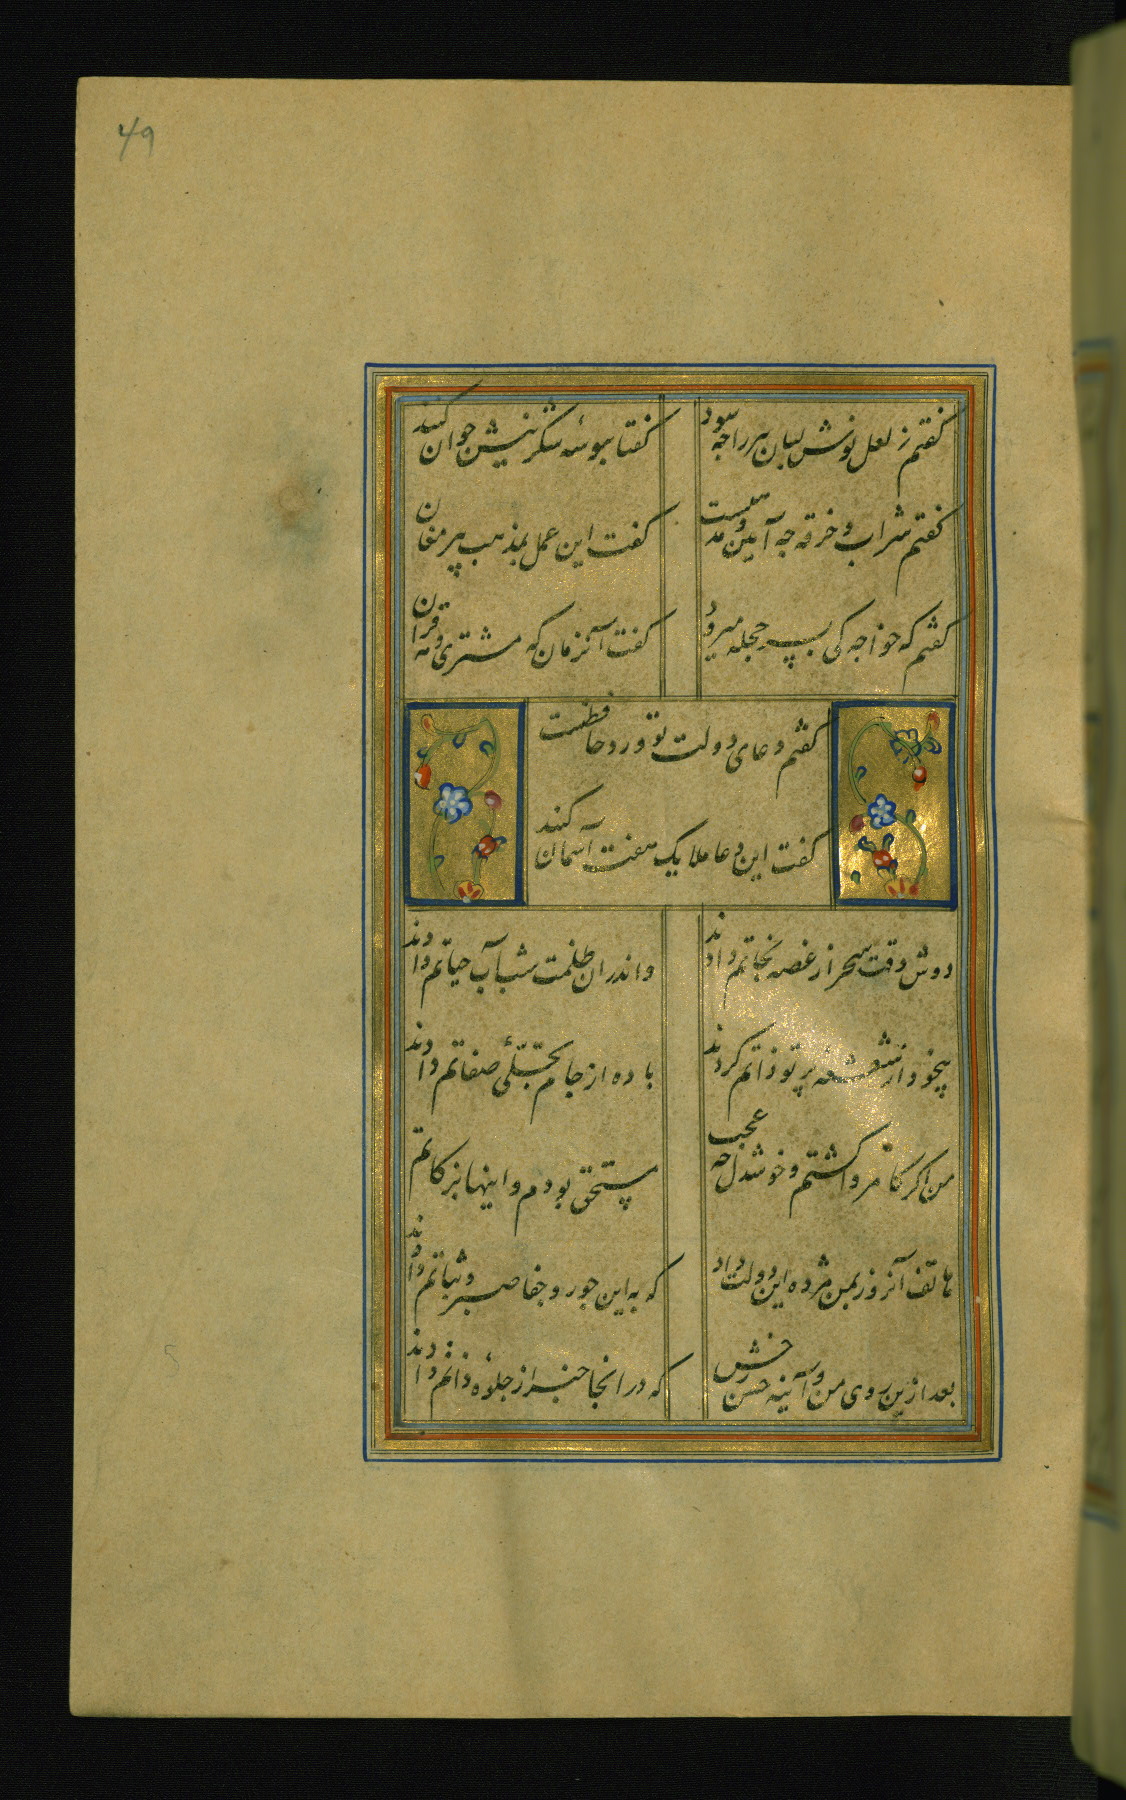 49
کفتم ز لعل نوش لبان پیر را چه سود
کفتا ببوسه شکرینیش جوان کنند
کفتم شراب و خرقه چه آیین مذهبست
کفت این عمل بمذهب پیر مغان
کفتم که خواجه کی بسر حجله میرود
کفت آنزمان که مشتری و مه قران
کفتم دعای دولت تو ورد حافظست
کفت این دعا ملایک هفت آسمان کنند
دوش وقت سحر از غصه نجاتم دادند
واندران ظلمت شب آب حیاتم دادند
بیخود از شعشعه پرتو ذاتم کردند
باده از جام تجلی صفاتم دادند
من اکر کامروا کشتم و خوشدل چه عجب
مستحق بودم و اینها بزکاتم
هاتف آنروز بمن مژده این دولت داد
که به این جور و جفا صبر و ثباتم دادند
بعد ازین روی من و آینه حسن رخش
که در انجا خبر از جلوه ذاتم دادند